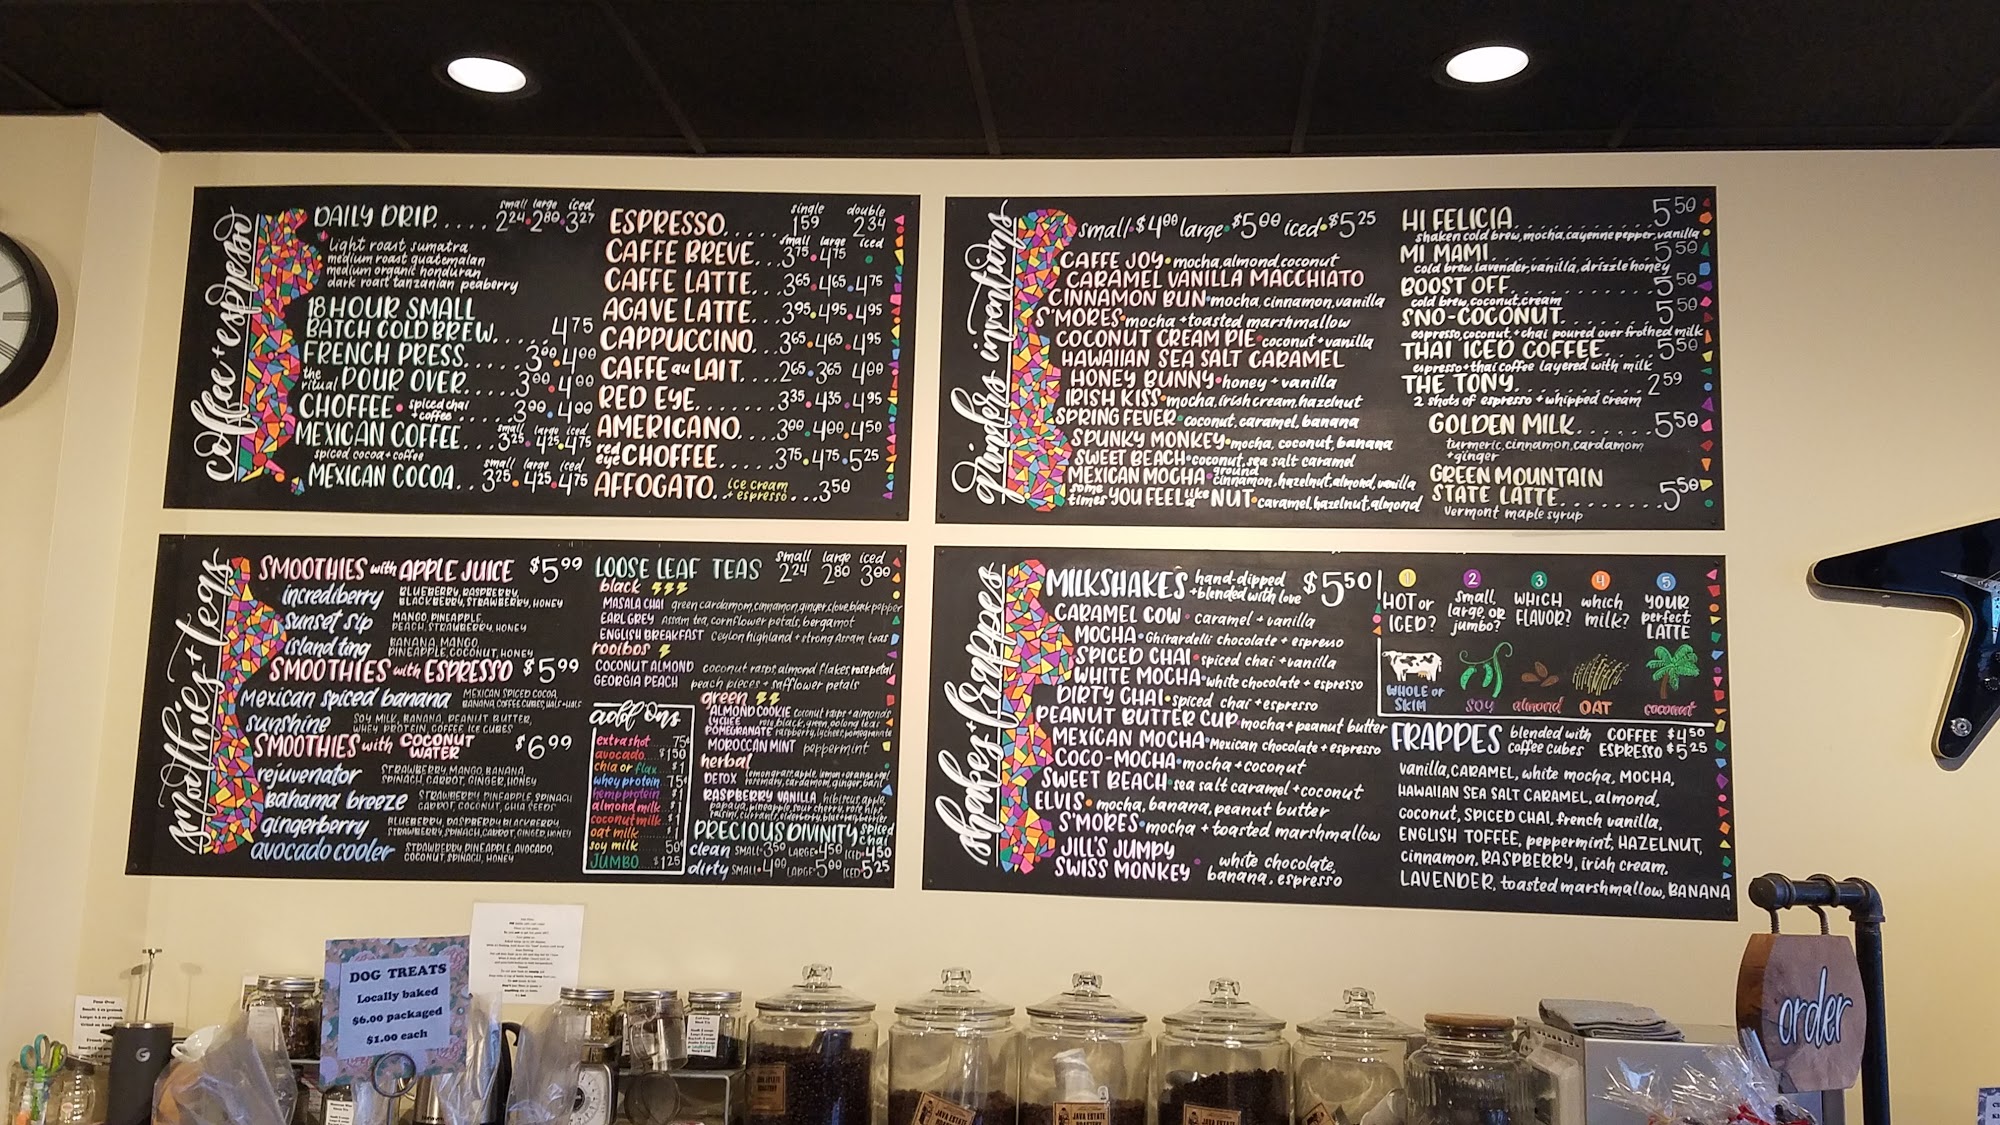 coffee + espresso
small large iced
DAILY DRIP..... 2 24 • 2 80 • 3 27
light roast sumatra
medium roast guatemalan
medium organic honduran
dark roast tanzanian peaberry
18 HOUR SMALL
BATCH COLD BREW.... 4 75
FRENCH PRESS..... 3 00 • 4 00
the ritual POUR OVER..... 3 00 • 4 00
CHOFFEE • spiced chai + coffee 3 00 • 4 00
small large iced
MEXICAN COFFEE... 3 25 • 4 25 • 4 75
spiced cocoa + coffee
small large iced
MEXICAN COCOA... 3 25 • 4 25 • 4 75
single double
ESPRESSO...... 1 59 2 34
small large iced
CAFFE BREVE... 3 75 • 4 75
CAFFE LATTE.... 3 65 • 4 65 • 4 75
AGAVE LATTE... 3 95 • 4 95 • 4 95
CAPPUCCINO... 3 65 • 4 65 • 4 95
CAFFE au LAIT... 2 65 • 3 65 4 00
RED EYE....... 3 35 • 4 35 • 4 95
AMERICANO.... 3 00 • 4 00 • 4 50
red eye CHOFFEE.... 3 75 • 4 75 • 5 25
AFFOGATO.. ice cream + espresso ... 3 50
grinders inventions
small • $4 00 large • $5 00 iced • $5 25
CAFFE JOY • mocha, almond, coconut
CARAMEL VANILLA MACCHIATO
CINNAMON BUN • mocha, cinnamon, vanilla
S'MORES • mocha + toasted marshmallow
COCONUT CREAM PIE • coconut + vanilla
HAWAIIAN SEA SALT CARAMEL
HONEY BUNNY • honey + vanilla
IRISH KISS • mocha, irish cream, hazelnut
SPRING FEVER • coconut, caramel, banana
SPUNKY MONKEY • mocha, coconut, banana
SWEET BEACH • coconut, sea salt caramel
MEXICAN MOCHA • ground cinnamon, hazelnut, almond, vanilla
some times YOU FEEL like a NUT • caramel, hazelnut, almond
HI FELICIA........... 5 50
shaken cold brew, mocha, cayenne pepper, vanilla
MI MAMI............ 5 50
cold brew, lavender, vanilla, drizzle honey
BOOST OFF.......... 5 50
cold brew, coconut, cream
SNO-COCONUT....... 5 50
espresso, coconut, + chai poured over frothed milk
THAI ICED COFFEE..... 5 50
espresso + thai coffee layered with milk
THE TONY......... 2 59
2 shots of espresso + whipped cream
GOLDEN MILK....... 5 50
turmeric, cinnamon, cardamom
+ ginger
GREEN MOUNTAIN
STATE LATTE....... 5 50
Vermont maple syrup
smoothies + teas
SMOOTHIES with APPLE JUICE $5 99
incrediberry BLUEBERRY, RASPBERRY,
BLACKBERRY, STRAWBERRY, HONEY
sunset sip MANGO, PINEAPPLE,
PEACH, STRAWBERRY, HONEY
island ting BANANA, MANGO,
PINEAPPLE, COCONUT, HONEY
SMOOTHIES with ESPRESSO $5 99
mexican spiced banana MEXICAN SPICED COCOA,
BANANA, COFFEE CUBES, HALF + HALF
sunshine SOY MILK, BANANA, PEANUT BUTTER,
WHEY PROTEIN, COFFEE ICE CUBES
SMOOTHIES with COCONUT WATER $6 99
rejuvenator STRAWBERRY, MANGO, BANANA,
SPINACH, CARROT, GINGER, HONEY
Bahama breeze STRAWBERRY, PINEAPPLE, SPINACH
CARROT, COCONUT, CHIA SEEDS
gingerberry BLUEBERRY, RASPBERRY, BLACKBERRY,
STRAWBERRY, SPINACH, CARROT, GINGER, HONEY
avocado cooler STRAWBERRY, PINEAPPLE, AVOCADO,
COCONUT, SPINACH, HONEY
small large iced
LOOSE LEAF TEAS 2 24 2 80 3 00
black
MASALA CHAI green cardamom, cinnamon, ginger, clove, black pepper
EARL GREY Assam tea, cornflower petals, bergamot
ENGLISH BREAKFAST Ceylon highland + strong Assam teas
rooibos
COCONUT ALMOND coconut rasps, almond flakes, rose petal
GEORGIA PEACH peach pieces + safflower petals
green
ALMOND COOKIE coconut rasps + almonds
LYCHEE POMEGRANATE rose, black, green, oolong teas
raspberry, lychee, pomegranate
MOROCCAN MINT peppermint
herbal
DETOX lemongrass, apple, lemon + orange peel
rosemary, cardamom, ginger, basil
RASPBERRY VANILLA hibiscus, apple,
papaya, pineapple, sour cherry, rose hip,
raisins, currants, elderberry,
PRECIOUS DIVINITY spiced chai
clean SMALL • 3 50 LARGE • 4 50 ICED • 4 50
dirty SMALL • 4 00 LARGE • 5 00 ICED • 5 25
add ons
extra shot..... 75¢
avocado..... $1 50
chia or flax... $1
whey protein.. 75¢
hemp protein.. $1
almond milk... $1
coconut milk.. $1
oat milk...... $1
soy milk..... 50¢
JUMBO.... $1 25
shakes + frappes
MILKSHAKES hand-dipped + blended with love $5 50
CARAMEL COW • caramel + vanilla
MOCHA • Ghirardelli chocolate + espresso
SPICED CHAI • spiced chai + vanilla
WHITE MOCHA • white chocolate + espresso
DIRTY CHAI • spiced chai + espresso
PEANUT BUTTER CUP • mocha + peanut butter
MEXICAN MOCHA • Mexican chocolate + espresso
COCO-MOCHA • mocha + coconut
SWEET BEACH • sea salt caramel + coconut
ELVIS • mocha, banana, peanut butter
S'MORES • mocha + toasted marshmallow
JILL'S JUMPY
SWISS MONKEY • white chocolate,
banana, espresso
1 HOT or ICED?
2 small, large, or jumbo?
3 WHICH FLAVOR?
4 which milk?
5 YOUR perfect LATTE
WHOLE or SKIM
SOY
almond
OAT
coconut
FRAPPES blended with coffee cubes COFFEE $4 50
ESPRESSO $5 25
vanilla, CARAMEL, white mocha, MOCHA,
HAWAIIAN SEA SALT CARAMEL, almond,
coconut, SPICED CHAI, french vanilla,
ENGLISH TOFFEE, peppermint, HAZELNUT,
cinnamon, RASPBERRY, irish cream,
LAVENDER, toasted marshmallow, BANANA
DOG TREATS
Locally baked
$6.00 packaged
$1.00 each
order
JAVA ESTATE
ROASTERY
JAVA ESTATE
JAVA ESTATE